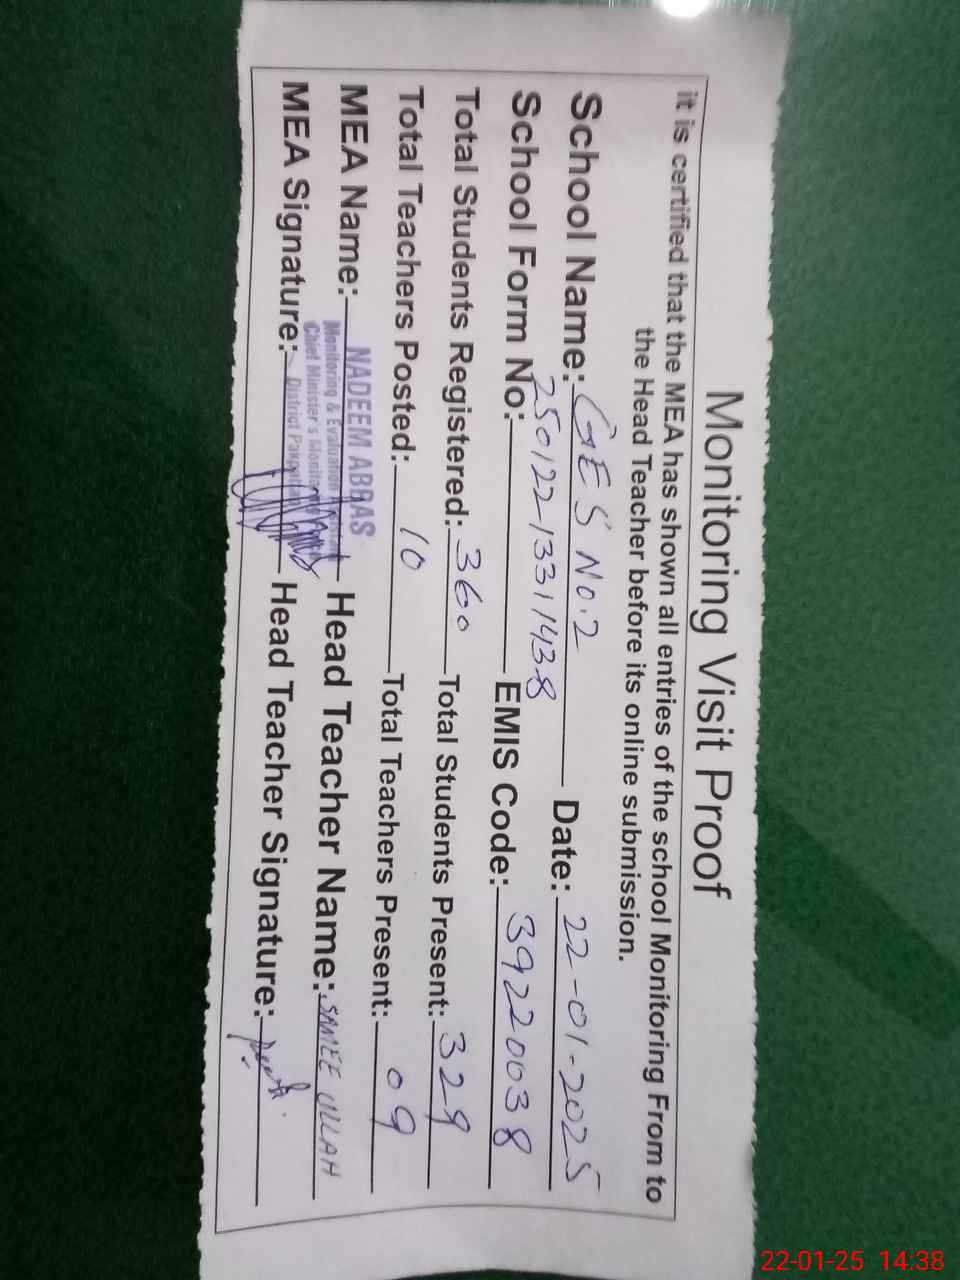 Monitoring Visit Proof
it is certified that the MEA has shown all entries of the school Monitoring From to
the Head Teacher before its online submission.
School Name: GES No.2 Date: 22-01-2025
School Form No: 250122-13311438 EMIS Code: 39220038
Total Students Registered: 360 Total Students Present: 329
Total Teachers Posted: 10 Total Teachers Present: 09
MEA Name: NADEEM ABBAS Head Teacher Name: SAMEE ULLAH
Monitoring & Evaluation
Chief Minister's
District Pakpattan
MEA Signature: Head Teacher Signature:
22-01-25 14:38